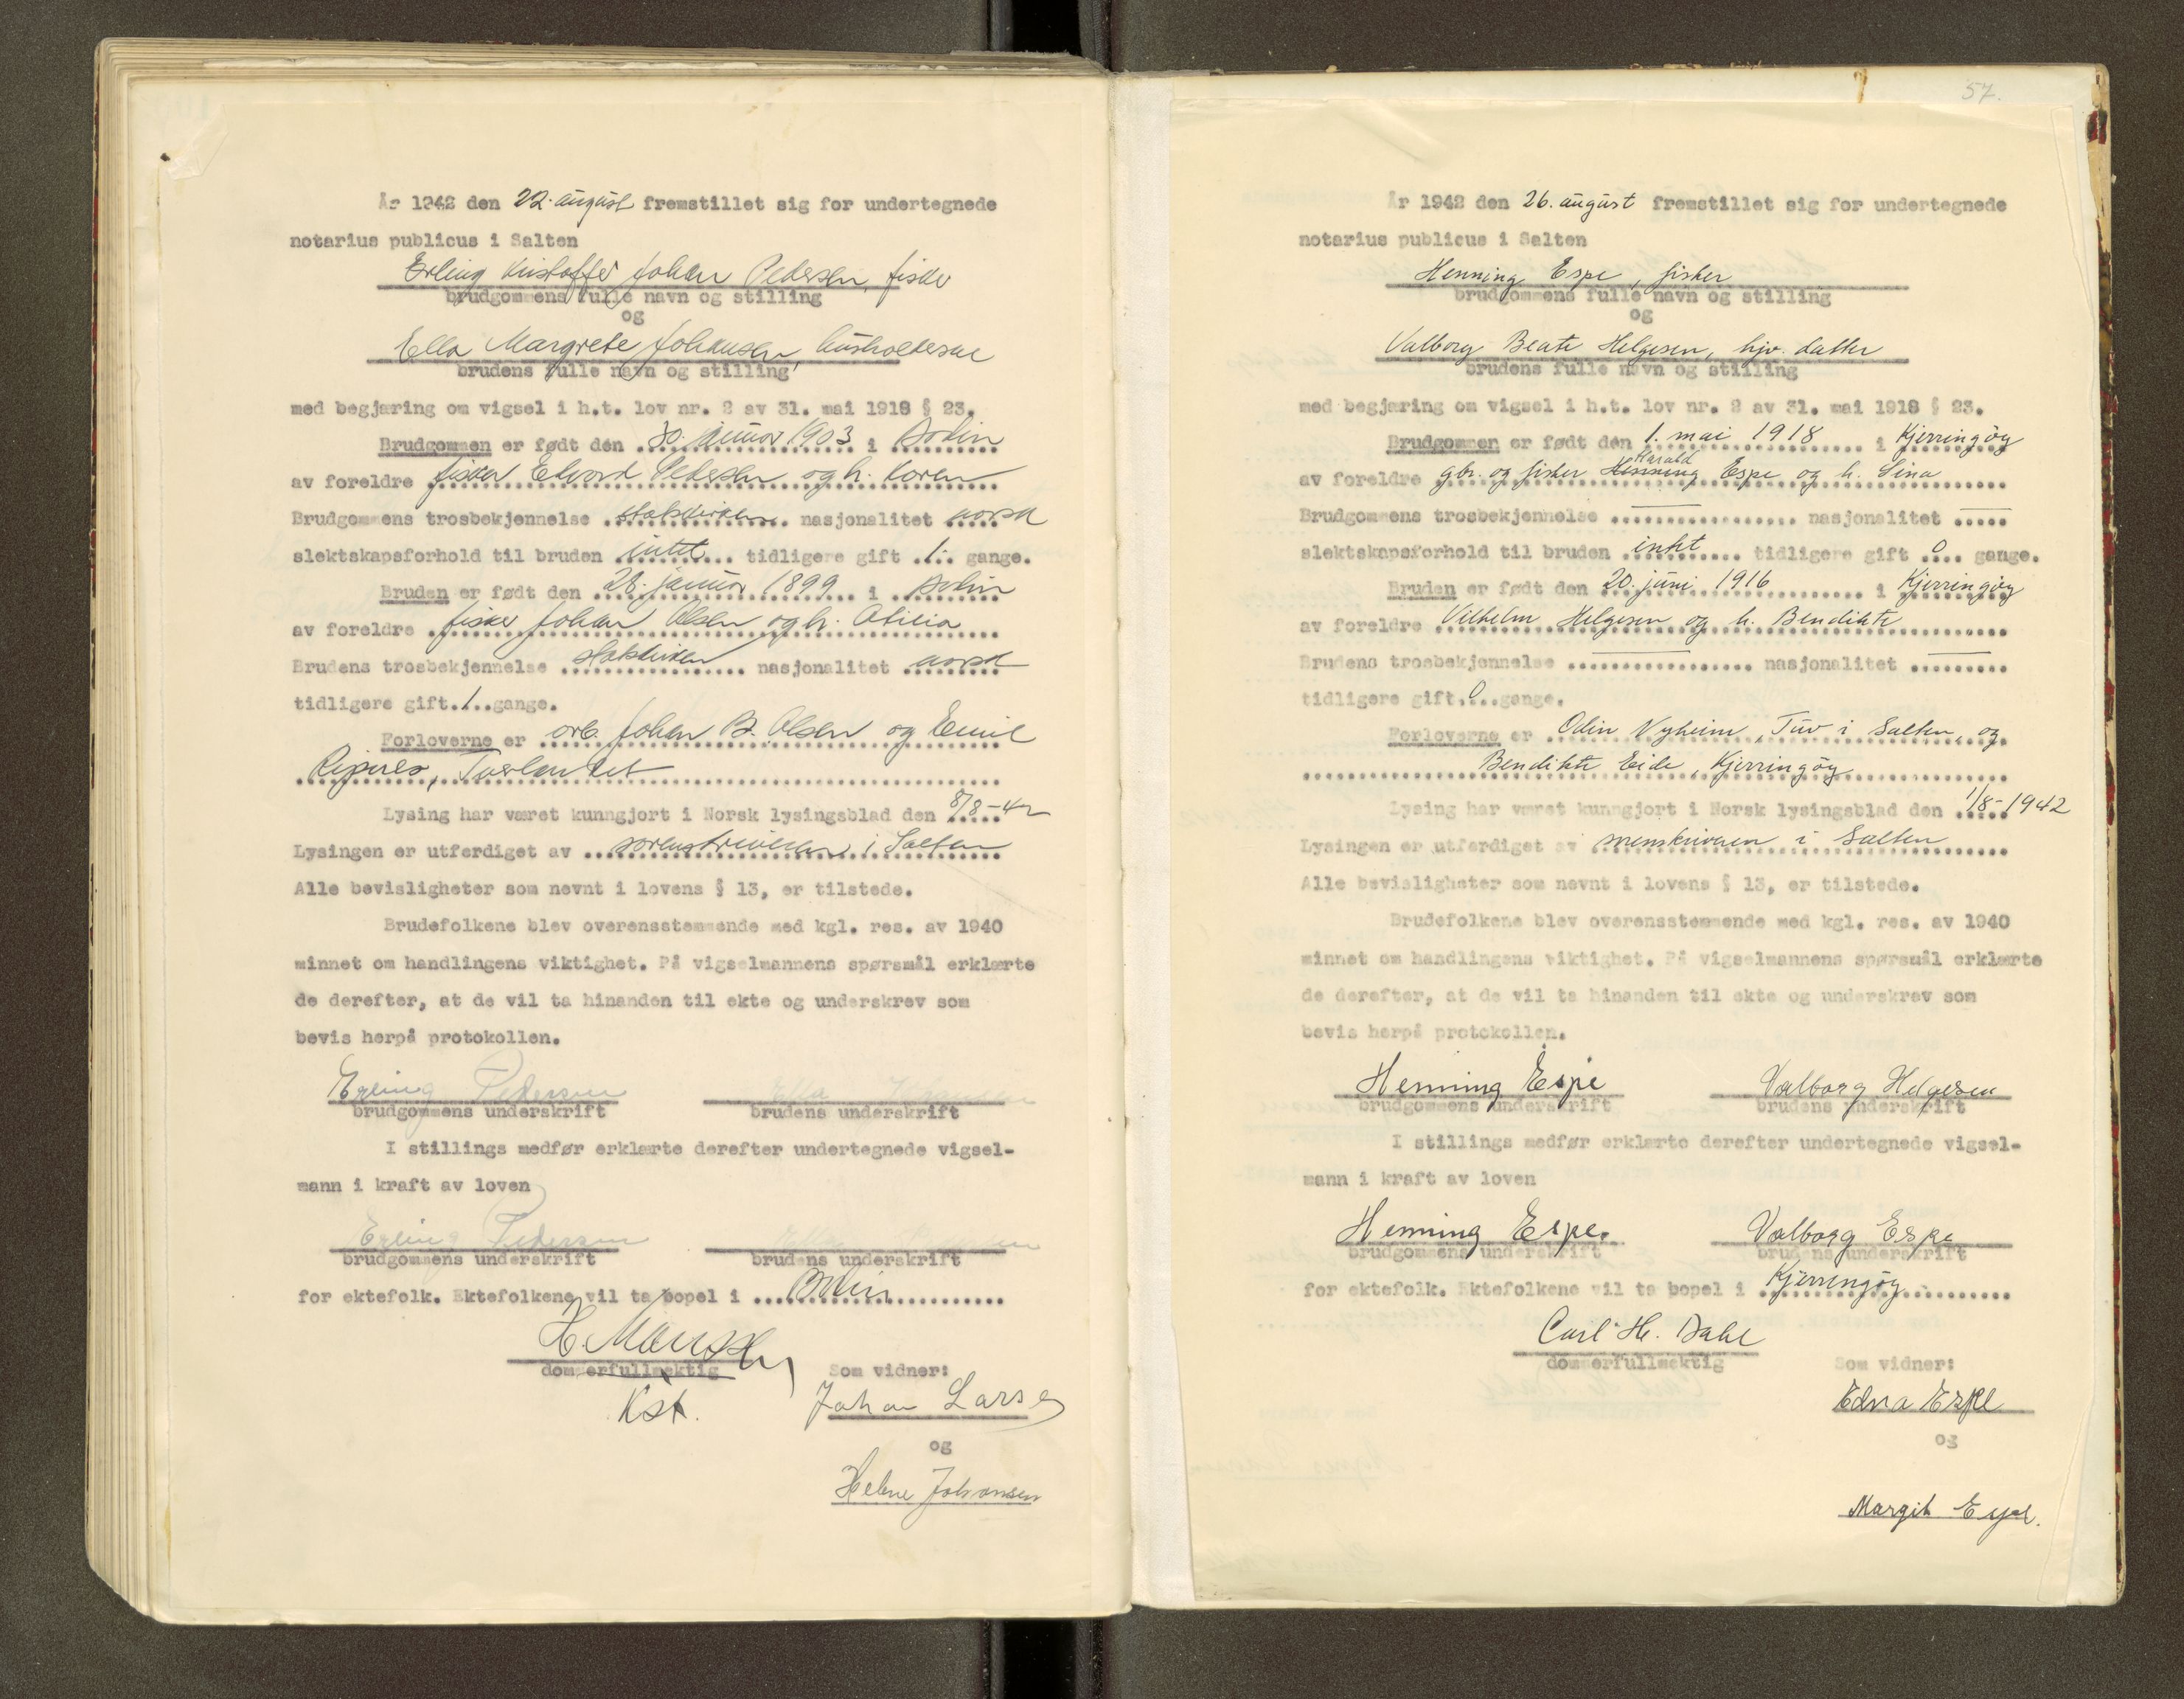 År 1942 den 22. august fremstillet sig for undertegnede
notarius publicus i Salten
Erling Kristoffer Johan Pedersen, fisker
brudgommens fulle navn og stilling
og
Ella Margrete Johansen, husholderske
brudens fulle navn og stilling
med begjæring om vigsel i h.t. lov nr. 2 av 31. mai 1918 § 23.
Brudgommen er født den 30. januar 1903 i Bodin
av foreldre fisker Edvard Pedersen og h. Karen
Brudgommens trosbekjennelse statskirken nasjonalitet norsk
slektskapsforhold til bruden intet tidligere gift 1 gange.
Bruden er født den 28. januar 1899 i Bodin
av foreldre fisker Johan Olsen og h. Otilia
Brudens trosbekjennelse statskirken nasjonalitet norsk
tidligere gift 1 gange.
Forloverne er arb. Johan B. Olsen og Emil
Lysing har været kunngjort i Norsk lysingsblad den 8/8-42
Lysingen er utferdiget av sorenskriveren i Salten
Alle bevisligheter som nevnt i lovens § 13, er tilstede.
Brudefolkene blev overensstemmende med kgl. res. av 1940
minnet om handlingens viktighet. På vigselmannens spørsmål erklærte
de derefter, at de vil ta hinanden til ekte og underskrev som
bevis herpå protokollen.
Erling Pedersen Ella Johansen
brudgommens underskrift brudens underskrift
I stillings medfør erklærte derefter undertegnede vigsel-
mann i kraft av loven
Erling Pedersen Ella Pedersen
brudgommens underskrift brudens underskrift
for ektefolk. Ektefolkene vil ta bopel i Bodin
dommerfullmektig Som vidner:
Kst. Johan Larsen
og
Helene Johansen
57.
År 1942 den 26. august fremstillet sig for undertegnede
notarius publicus i Salten
Henning Espe, fisker
brudgommens fulle navn og stilling
og
Valborg Beate Helgesen, hjv. datter
brudens fulle navn og stilling
med begjæring om vigsel i h.t. lov nr. 2 av 31. mai 1918 § 23.
Brudgommen er født den 1. mai 1918 i Kjerringøy
Harald
av foreldre gbr. og fisker Henning Espe og h. Sina
Brudgommens trosbekjennelse — nasjonalitet —
slektskapsforhold til bruden intet tidligere gift 0 gange.
Bruden er født den 20. juni 1916 i Kjerringøy
av foreldre Vilhelm Helgesen og h. Bendikte
Brudens trosbekjennelse — nasjonalitet —
tidligere gift 0 gange.
Forloverne er Odin Nyheim, Tuv i Salten, og
Bendikte Eide, Kjerringøy
Lysing har været kunngjort i Norsk lysingsblad den 1/8-1942
Lysingen er utferdiget av sorenskriveren i Salten
Alle bevisligheter som nevnt i lovens § 13, er tilstede.
Brudefolkene blev overensstemmende med kgl. res. av 1940
minnet om handlingens viktighet. På vigselmannens spørsmål erklærte
de derefter, at de vil ta hinanden til ekte og underskrev som
bevis herpå protokollen.
Henning Espe Valborg Helgesen
brudgommens underskrift brudens underskrift
I stillings medfør erklærte derefter undertegnede vigsel-
mann i kraft av loven
Henning Espe. Valborg Espe
brudgommens underskrift brudens underskrift
for ektefolk. Ektefolkene vil ta bopel i Kjerringøy
Carl H. Dahl
dommerfullmektig Som vidner:
Edna Espe
og
Margit